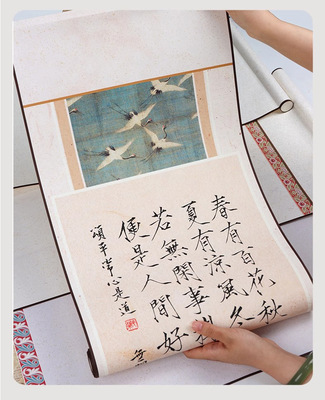 春有百花秋
夏有涼風冬
若無閑事
便是人間好
頌平常心是道